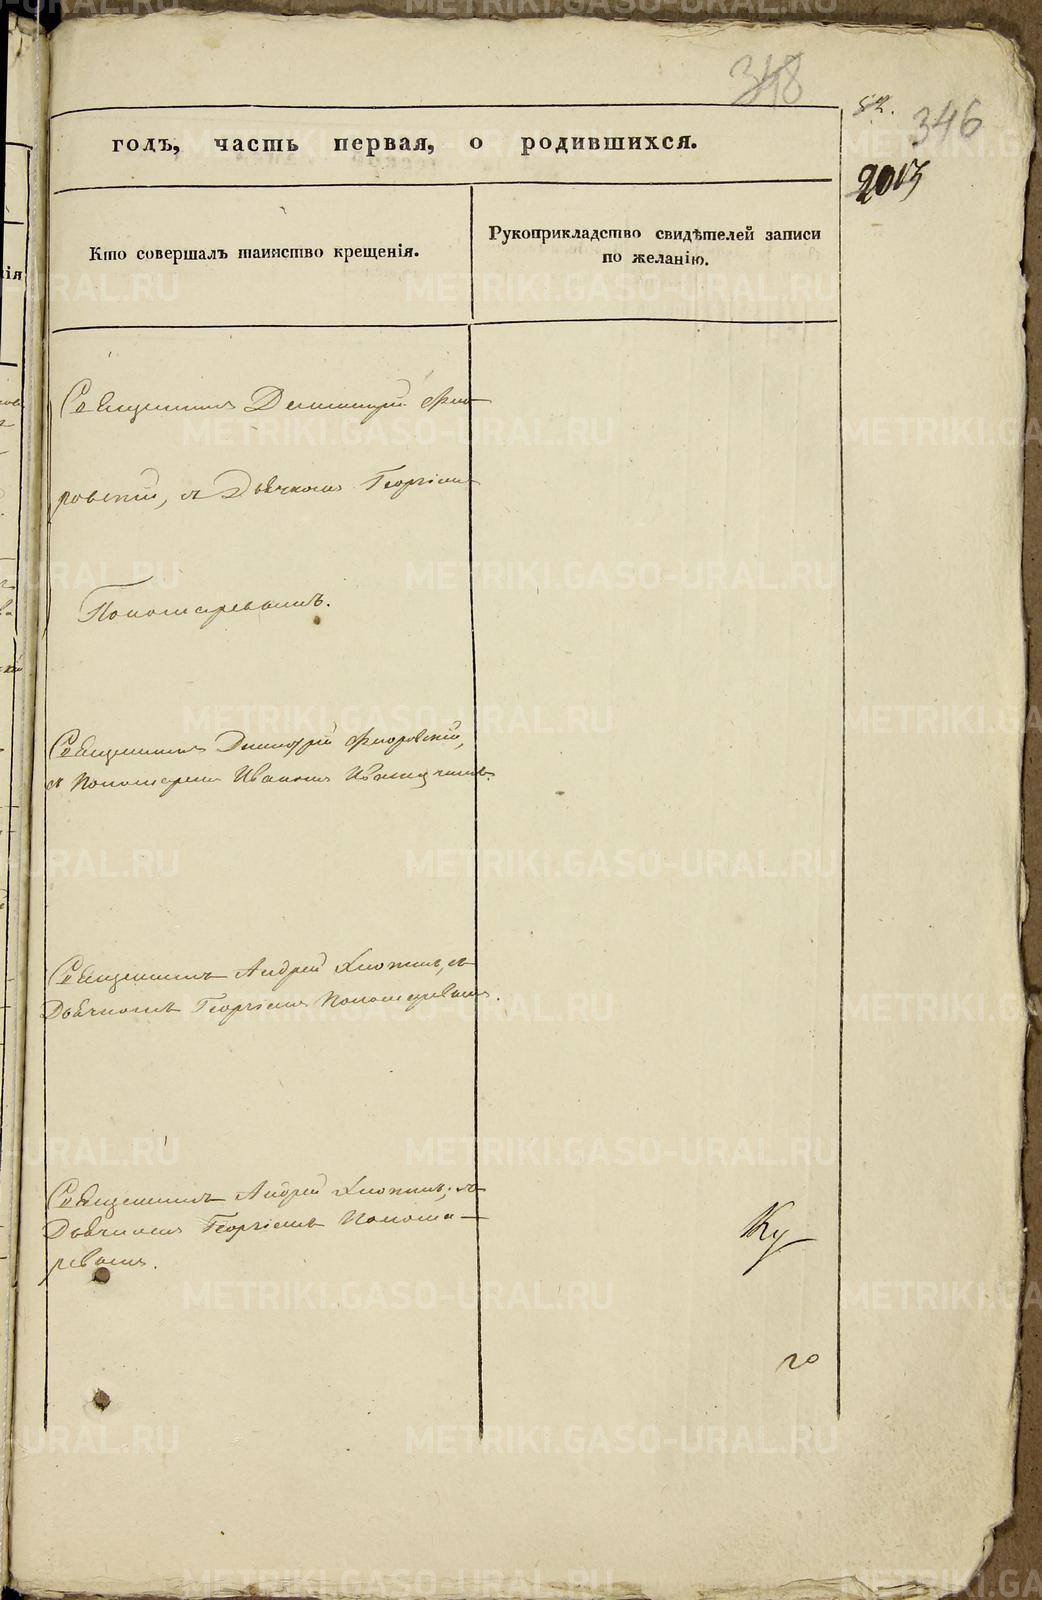 348
52.
346
2013
годъ, часть первая, о родившихся.
Кто совершалъ таинство крещенія.
Рукоприкладство свидѣтелей записи
по желанію.
Священникъ Димитрій Фло-
ровскій, съ Дьячкомъ Георгіемъ
Пономаревымъ.
Священникъ Димитрій Флоровскій,
съ Пономаремъ Иваномъ
Священникъ Андрей Хлопинъ, съ
Дьячкомъ Георгіемъ Пономаревымъ.
Священникъ Андрей Хлопинъ, съ
Дьячкомъ Георгіемъ Понома-
ревымъ.
Ку
го
METRIKI.GASO-URAL.RU